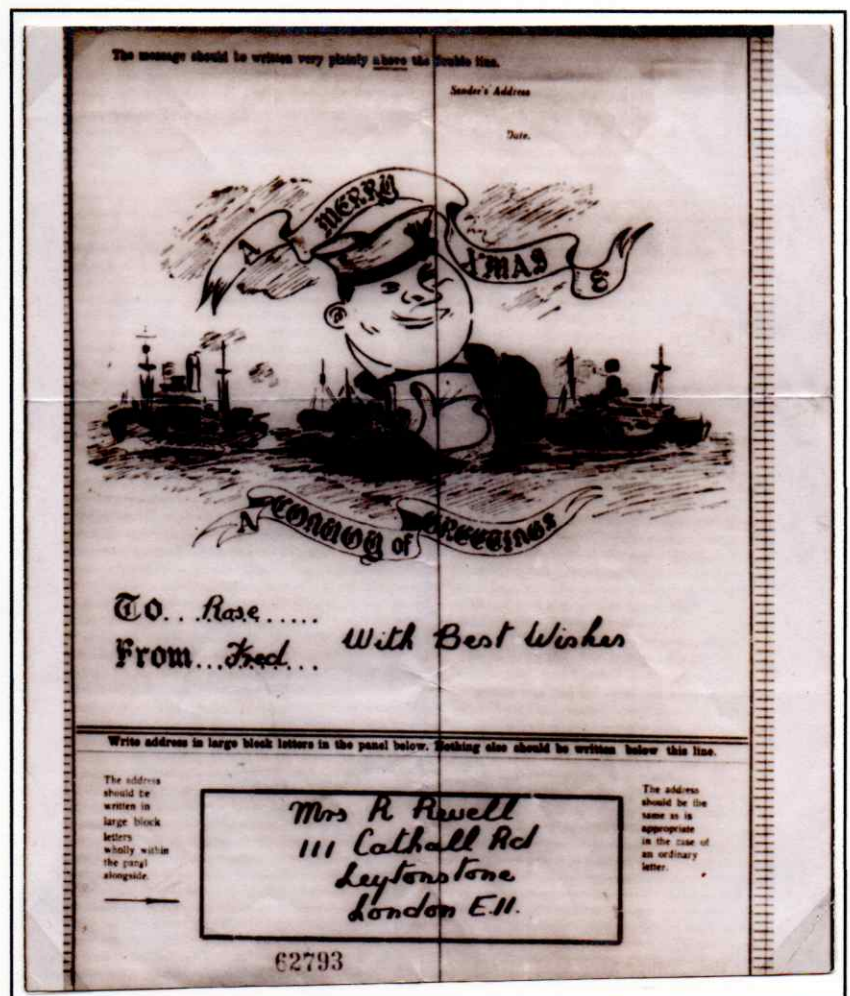 The message should be written very plainly above the double line.
Sender's Address
Date.
A MERRY XMAS &
A CONVOY of GREETINGS
To...Rose.....
From...Fred... With Best Wishes
Write address in large block letters in the panel below. Nothing else should be written below this line.
The address
should be
written in
large block
letters
wholly within
the panel
alongside.
Mrs R Rewell
111 Cathall Rd
Leytonstone
London E.11.
The address
should be the
same as is
appropriate
in the case of
an ordinary
letter.
62793